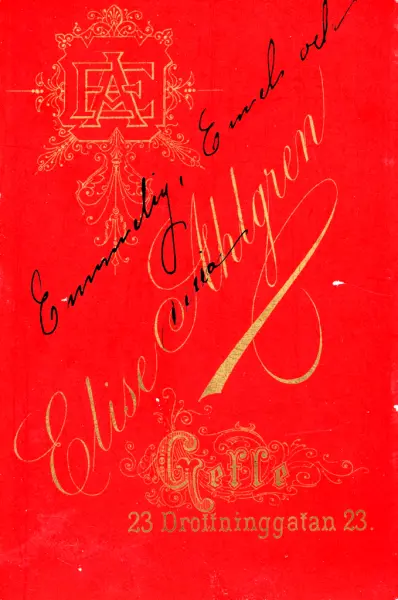 EAE
Emmelig, Emels och
Elise Ahlgren
Gefle
23 Drottninggatan 23.